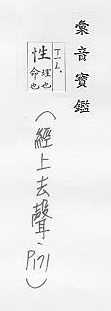 彙音寶鑑
性 理也 命也
(經上去聲,P171)